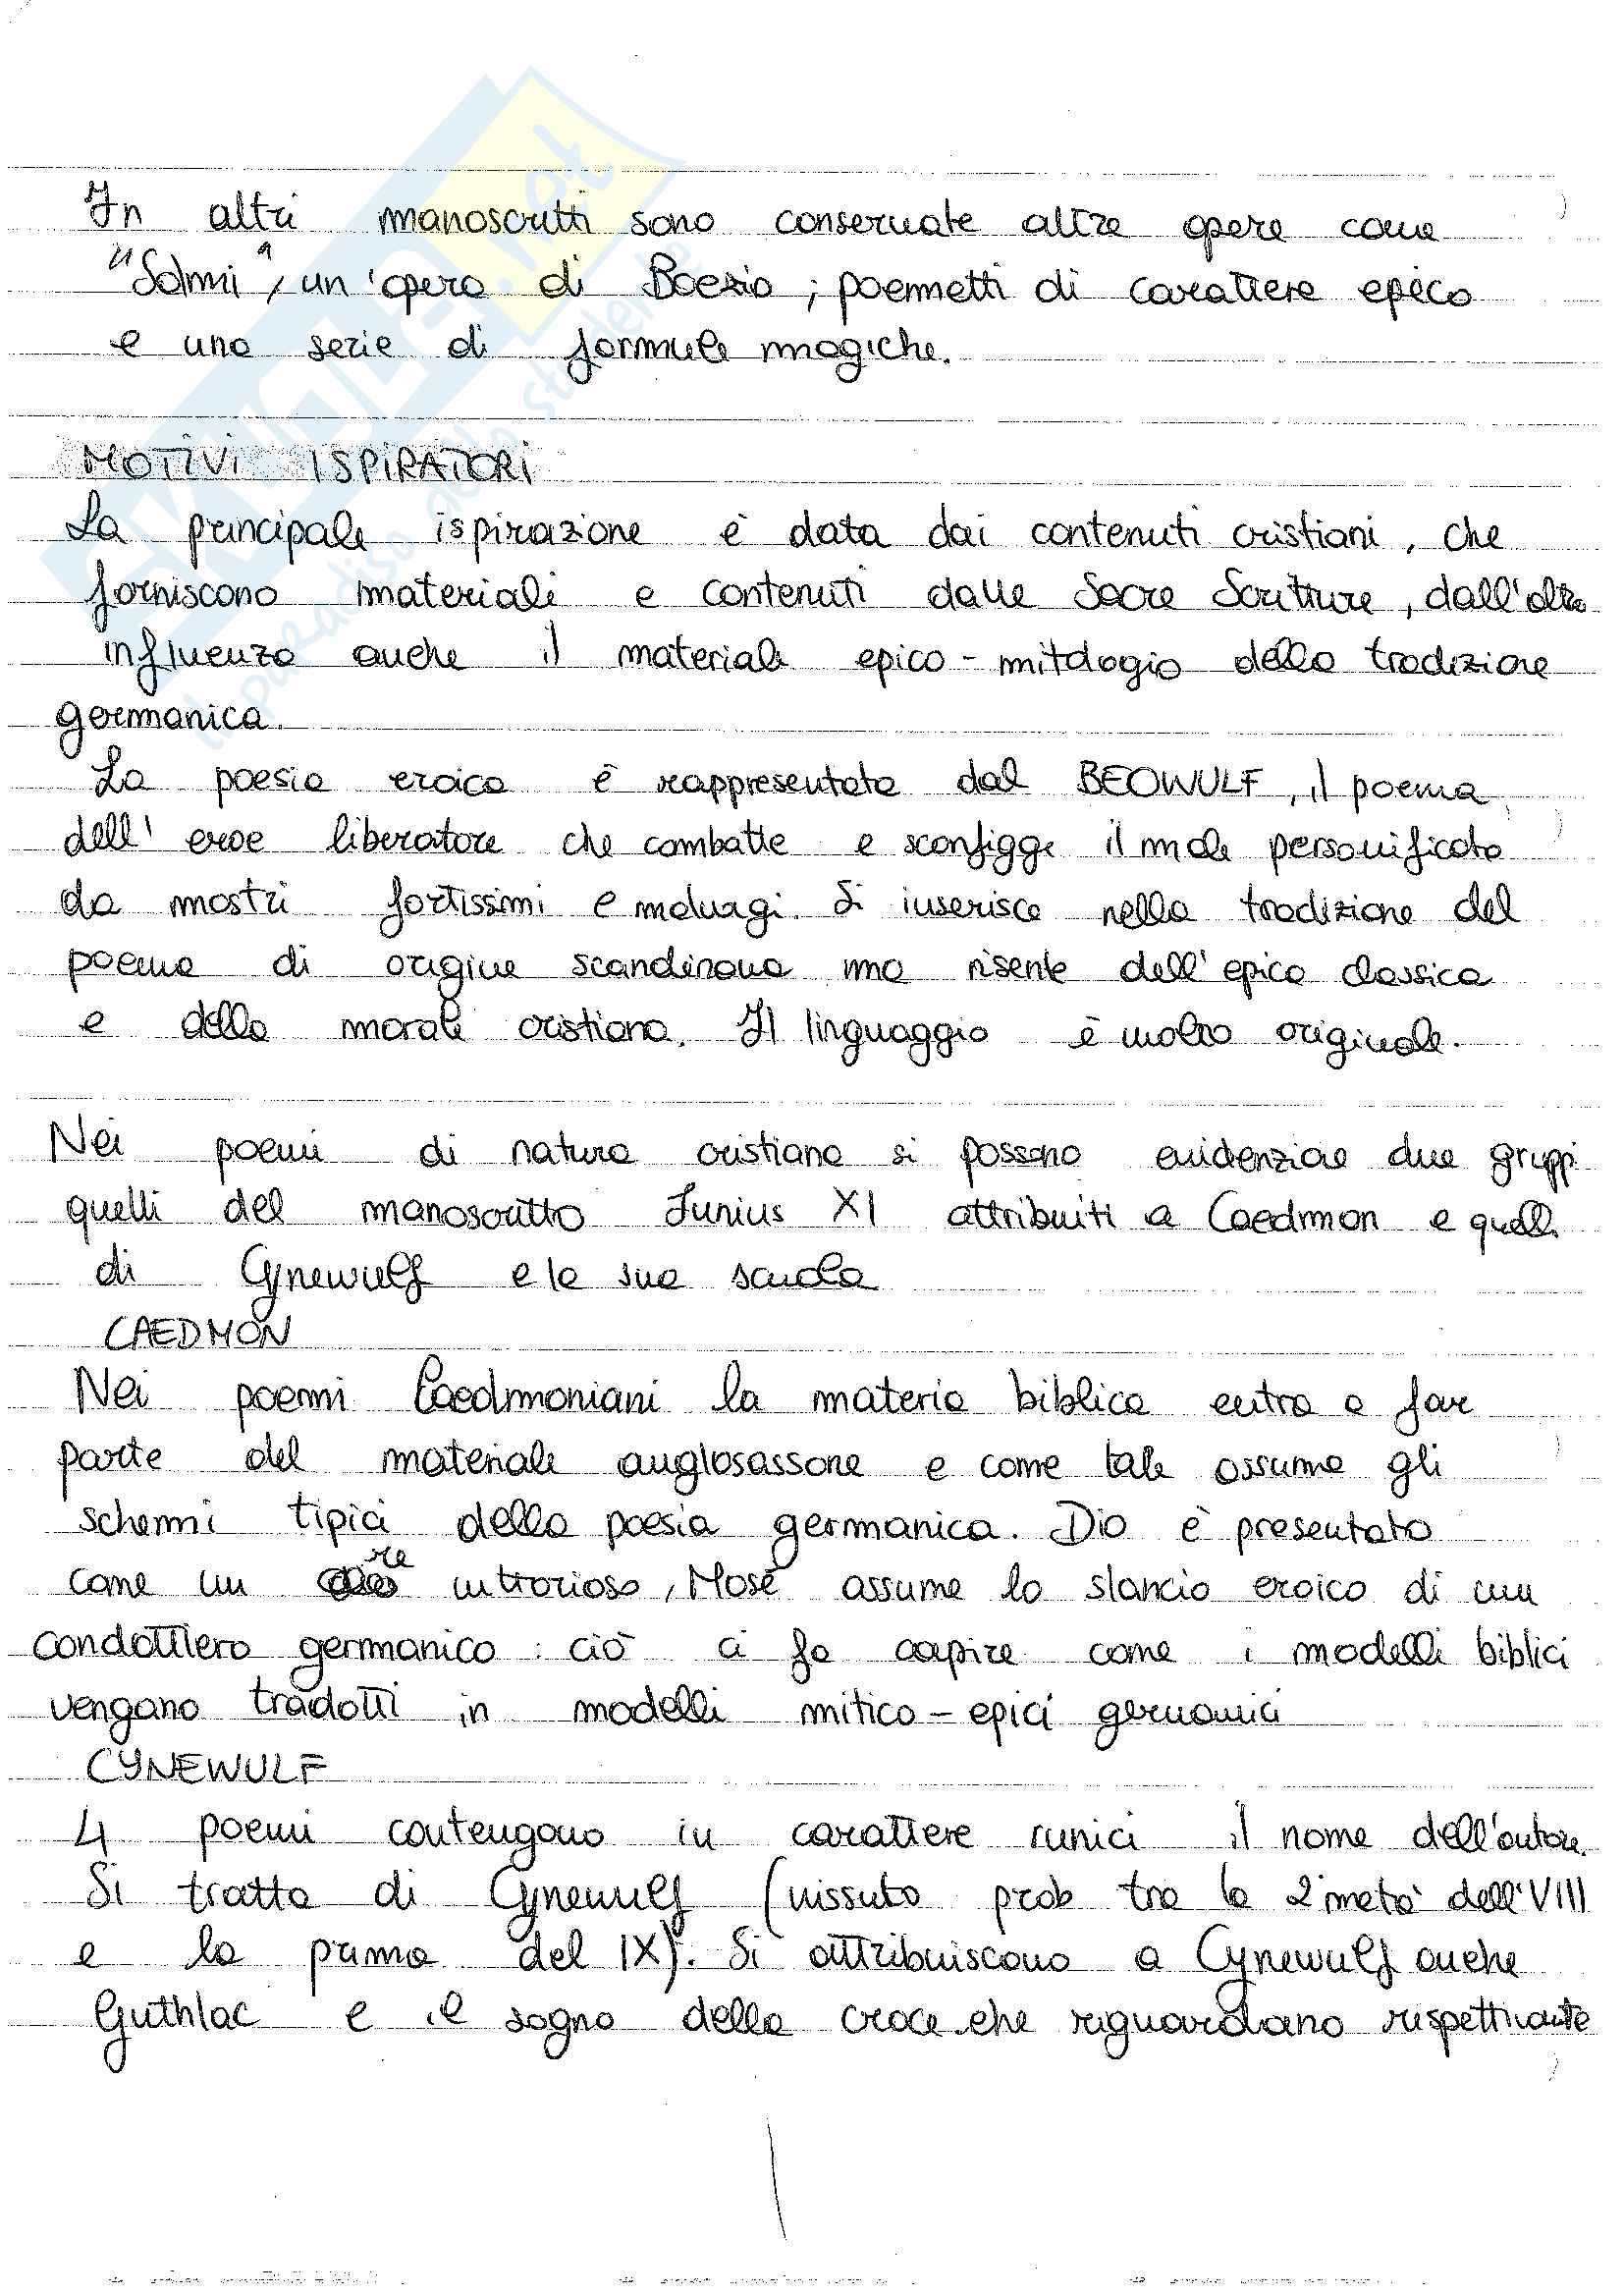 In altri manoscritti sono conservate altre opere come
"Salmi", un'opera di Boezio; poemetti di carattere epico
e una serie di formule magiche.
MOTIVI ISPIRATORI
La principale ispirazione è data dai contenuti cristiani, che
forniscono materiali e contenuti dalle Sacre Scritture, dall'altro
influenza anche il materiale epico-mitologio della tradizione
germanica.
La poesia eroica è rappresentata dal BEOWULF, il poema
dell'eroe liberatore che combatte e sconfigge il male personificato
da mostri fortissimi e malvagi. Si inserisce nella tradizione del
poema di origine scandinava ma risente dell'epica classica
e della morale cristiana. Il linguaggio è molto originale.
Nei poemi di natura cristiana si possono evidenziae due gruppi
quelli del manoscritto Junius XI attribuiti a Caedmon e quelli
di Cynewulf e la sua scuola
CAEDMON
Nei poemi Caedmoniani la materia biblica entra a far
parte del materiale anglosassone e come tale assume gli
schemi tipici della poesia germanica. Dio è presentato
come un re vittorioso, Mosè assume lo slancio eroico di un
condottiero germanico: ciò ci fa capire come i modelli biblici
vengano tradotti in modelli mitico-epici germanici
CYNEWULF
4 poemi contengono in carattere runici il nome dell'autore.
Si tratta di Cynewulf (vissuto prob tra la 2ª metà dell'VIII
e la prima del IX). Si attribuiscono a Cynewulf anche
Guthlac e il sogno della croce che riguardano rispettivante
SKUOLA.net
il paradiso dello studente